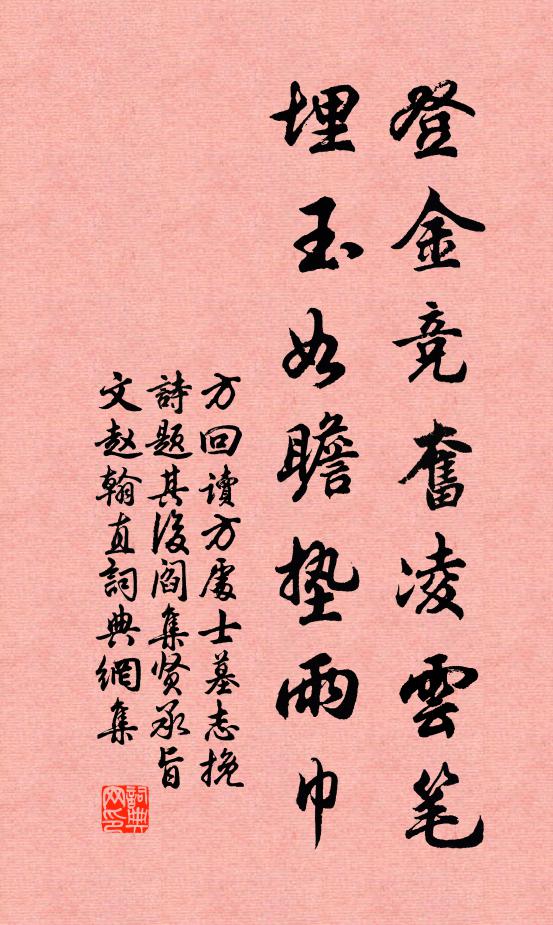 登金竞奮凌雲笔
埋玉如瞻垫雨巾
方回讀方處士墓志挽
詩題其後阎集贤承旨
文赵翰直詞典網集
詞典網印